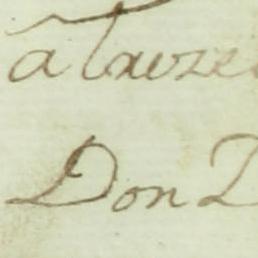 a Treze
Don D